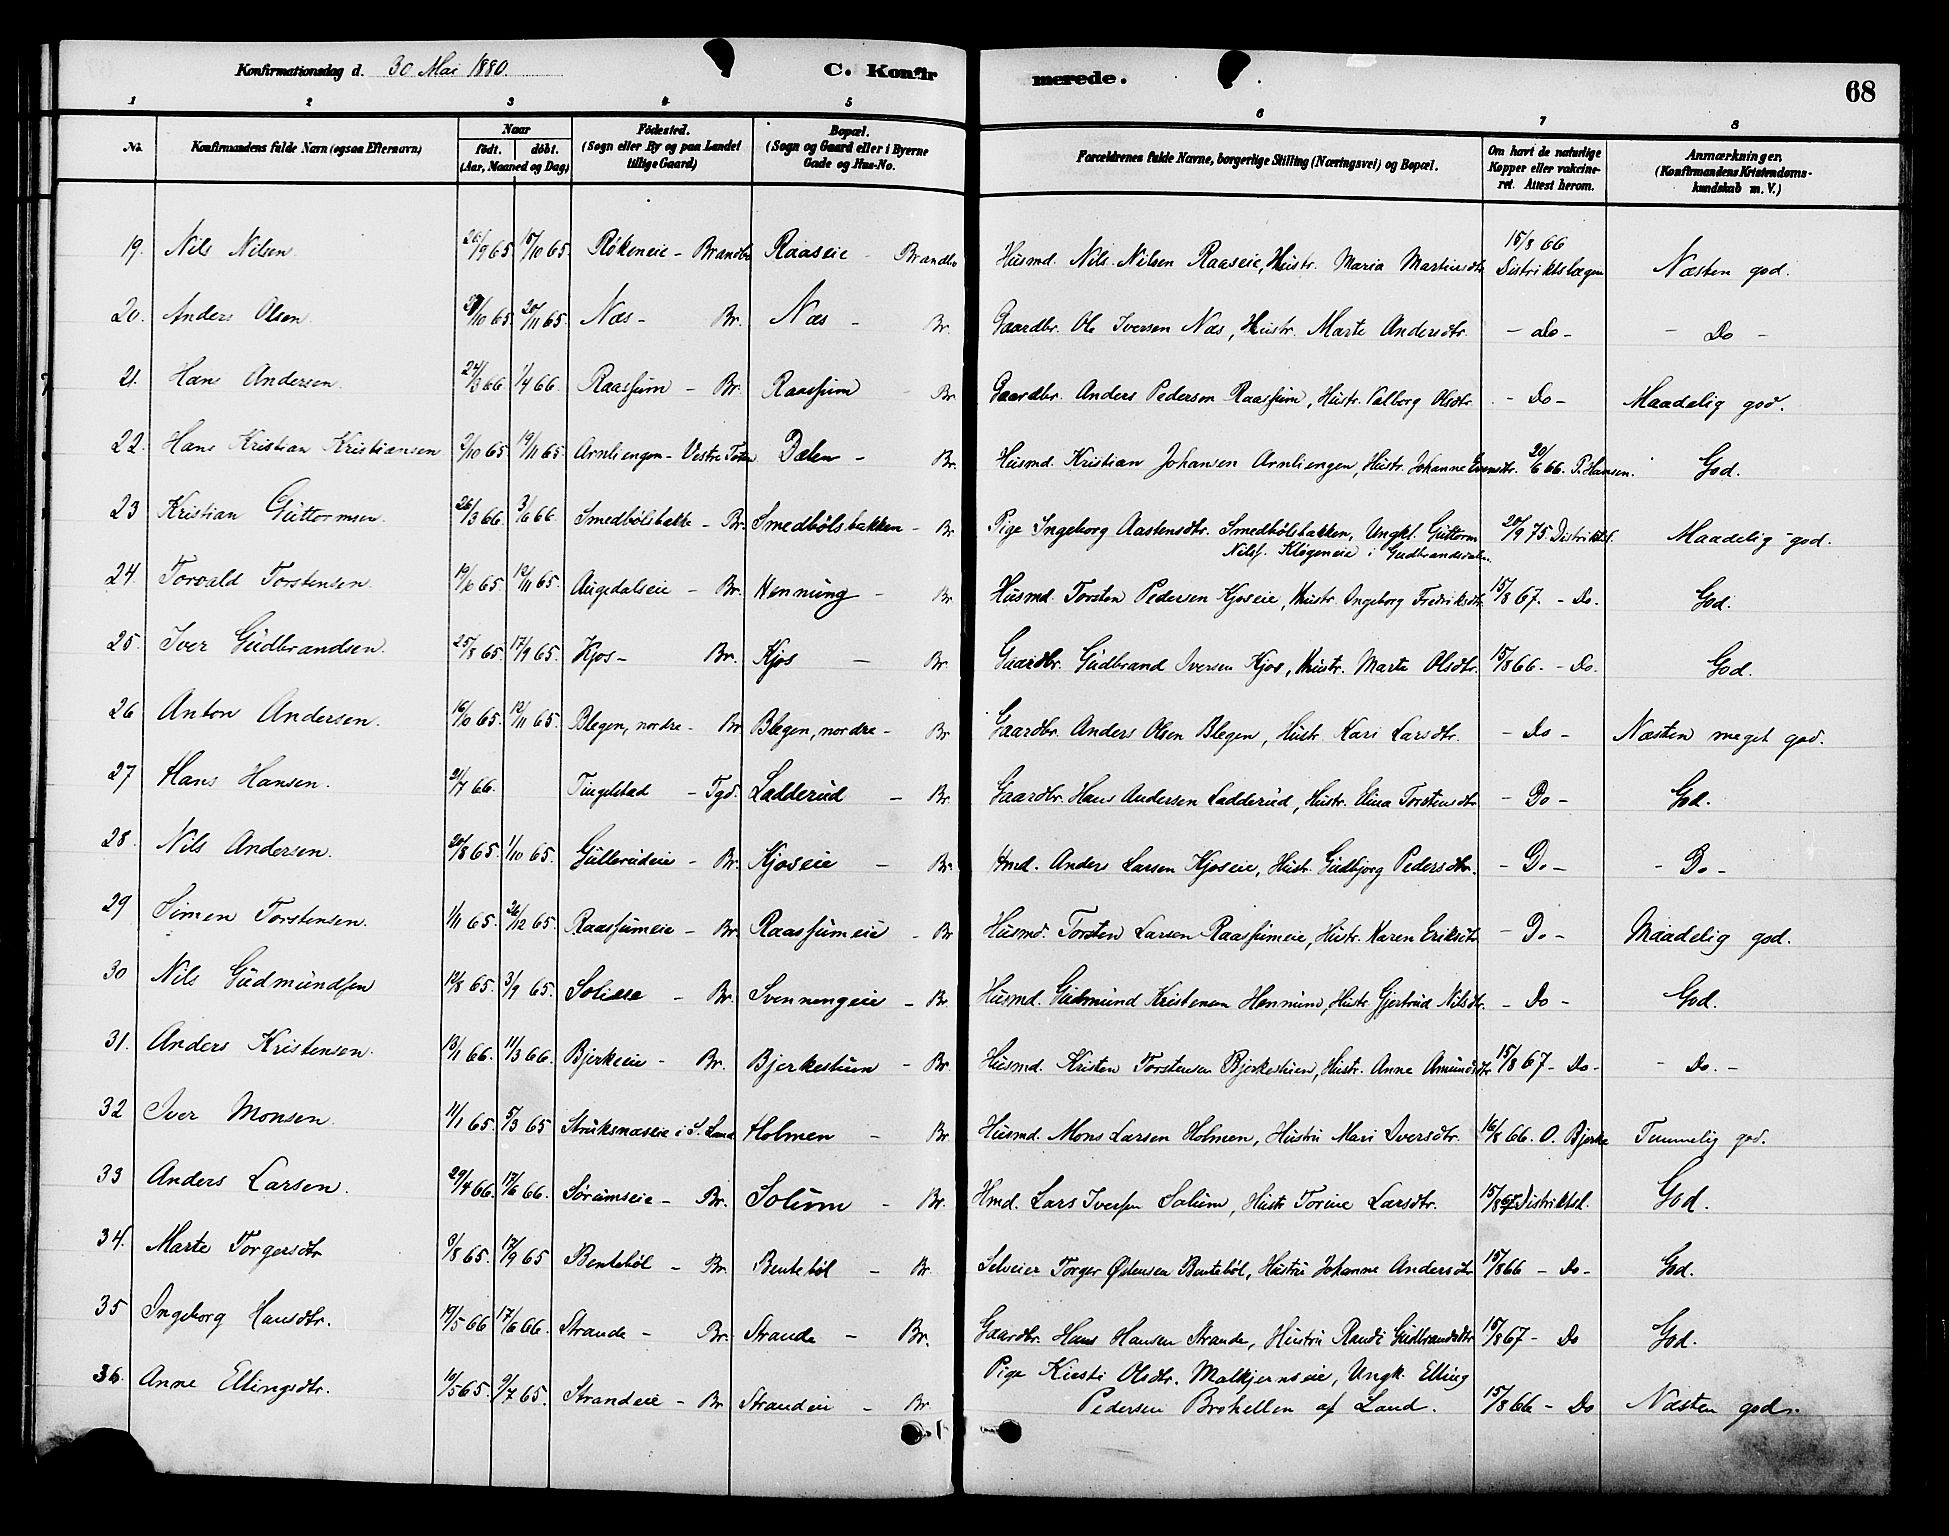 Konfirmationsdag d. 30 Mai 1880. C. Konfirmerede. 68
1 2 3 4 5 6 7 8
No. Konfirmandens fulde Navn (ogsaa Efternavn) Naar født. døbt. (Aar, Maaned og Dag) Fødested. (Sogn eller By og paa Landet tillige Gaard) Bopæl. (Sogn og Gaard eller i Byerne Gade og Hus-No. Forældrenes fulde Navne, borgerlige Stilling (Næringsvei) og Bopæl. Om havt de naturlige Kopper eller vakcineret. Attest herom. Anmærkninger. (Konfirmandens Kristendomskundskab m. V.)
19. Nils Nilsen. 20/9 65. 15/10 65. Røkeneie - Brandbu Raaseie - Brandbu Husmd. Nils Nilsen Raaseie, Hustr. Maria Martinsdtr. 15/8 66 Distriktslægen Næsten god.
20. Anders Olsen 29/10 65. 20/11 65. Næs - Br. Næs - Br. Gaardbr. Ole Iversen Næs, Hustr. Marte Andersdtr. - do - - Do -
21. Hans Andersen. 24/3 66 1/4 66. Raassum - Br. Raassum - Br Gaardbr. Anders Pedersen Raassum, Hustr. Valborg Olsdtr. - Do - Maadelig god.
22. Hans Kristian Kristiansen 2/10 65 19/11 65. Arnliengen - Vestre Toten Dalen - Br. Husmd. Kristian Johansen Arnliengen, Hustr. Johanne Evensdtr. 20/6 66. P. Hansen. God.
23 Kristian Guttormsen. 26/3 66. 3/6 66. Smedbølsbakke - Br. Smedbølsbakken - Br Pige Ingeborg Aastensdtr. Smedbølsbakken, Ungkl. Guttorm Nilss. Kløgeneie i Gudbrandsdalen. 20/9 75 Distriktsl. Maadelig god.
24. Torvald Torstensen. 19/10 65. 12/11 65. Augedalseie - Br. Hennung - Br Husmd. Torsten Pedersen Kjoseie, Hustr. Ingeborg Fredriksdtr. 15/8 67. - Do. God.
25. Iver Gudbrandsen. 25/8 65. 17/9 65. Kjos - Br. Kjos - Br. Gaardbr. Gudbrand Iversen Kjos, Hustr. Marte Olsdtr. 15/8 66. - Do. God.
26 Anton Andersen. 16/10 65. 12/11 65. Blegen, nordre - Br Blegen, nordre - Br Gaardbr. Anders Olsen Blegen, Hustr. Kari Larsdtr. - Do - Næsten meget god.
27 Hans Hansen. 21/7 66. Tingelstad - Tgd. Ladderud - Br Gaardbr. Hans Andersen Ladderud, Hustr. Elina Torstensdtr - Do - God.
28. Nils Andersen. 20/8 65. 1/10 65. Gullerudeie - Br. Kjoseie - Br. Hmd. Anders Larsen Kjoseie, Hustr. Gudbjørg Pedersdtr. - Do - - Do -
29 Simen Torstensen. 1/11 65. 26/12 65. Raassumeie - Br. Raassumeie - Br Husmd. Torsten Larsen Raassumeie, Hustr. Karen Eriksdtr - Do - Maadelig god.
30 Nils Gudmundsen 12/8 65. 3/9 65. Soliese - Br. Svenningeie - Br. Husmd. Gudmund Kristensen Hennung, Hustr. Gjertrud Nilsdtr. - Do - God.
31. Anders Kristensen. 13/1 66. 11/3 66. Bjerkeeie - Br. Bjerkestuen - Br. Husmd. Kristen Torstensen Bjerkestuen, Hustr. Anne Amundsdtr 15/8 67 - Do - - Do. -
32 Iver Monsen. 11/1 65. 5/3 65 Struksnæseie i S. Land Holmen - Br Husmd. Mons Larsen Holmen, Hustru Mari Iversdtr. 16/8 66. O. Bjerke Temmelig god.
33 Anders Larsen. 29/4 66. 17/6 66. Sørumseie - Br. Solum - Br. Hmd. Lars Iversen Solum, Hustr Torine Larsdtr. 15/8 67 Distriktsl. God.
34. Marte Torgersdtr 9/8 65. 17/9 65 Bentebøl - Br. Bentebøl - Br. Selveier Torger Østensen Bentebøl, Hustru Johanne Andersdtr 15/8 66 - Do - God.
35 Ingeborg Hansdtr. 19/5 66 17/6 66. Strande - Br. Strande - Br. Gaardbr. Hans Hansen Strande, Hustru Randi Gudbrandsdtr 15/8 67 - Do God.
36. Anne Ellingsdtr. 16/5 65. 9/7 65. Strandeie - Br Strandeie - Br. Pige Kirsti Olsdtr. Malkjernseie, Ungk. Elling Pedersen Brohellen af Land. 15/8 66 - Do Næsten god.